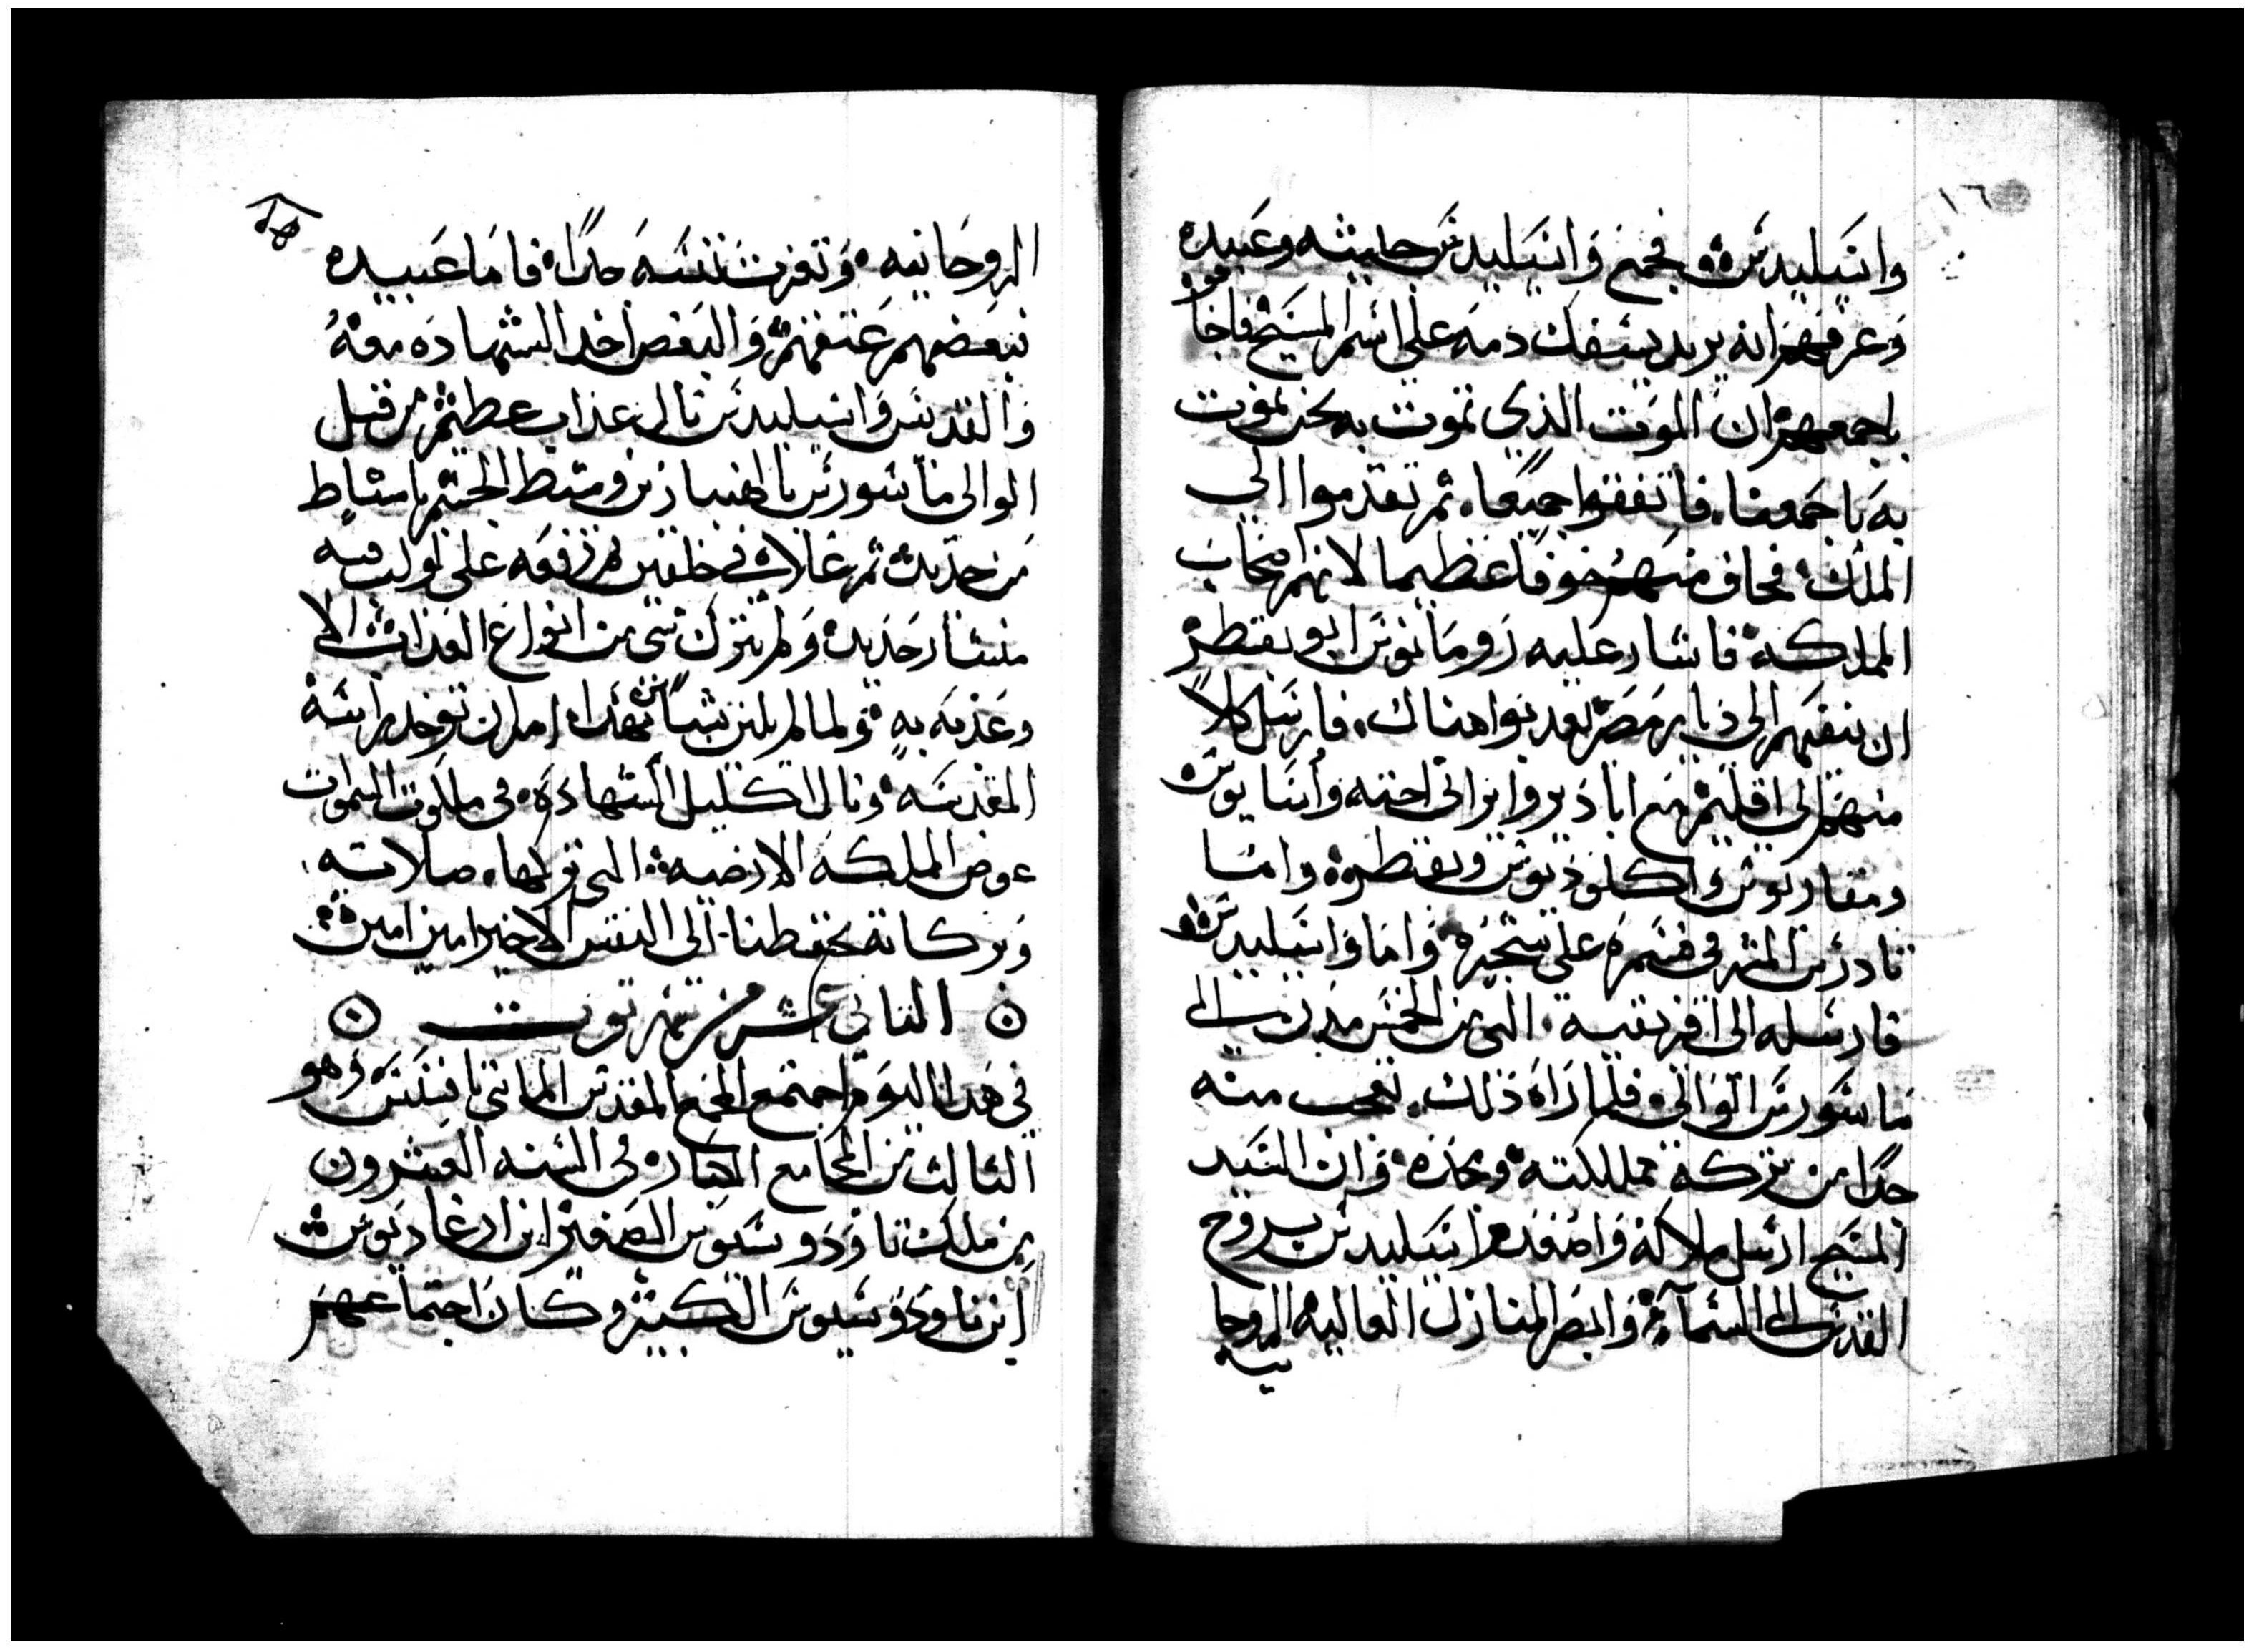 ١٦
واسيليدس فجمع واسيليدس حاشيته وعبيده
وعرفهم انه يريد يسفك دمه على اسم المسيح فاجابوه
باجمعهم ان الموت الذي تموت به نحن نموت
به باجمعنا فاتفقوا جميعا ثم تقدموا الي
الملك فخاف منهم خوفا عظيما لانهم اصحاب
المملكة فاشار عليه رومانوس ابو بقطر
ان ينفيهم الى ديار مصر ليعدبوا هناك فارسل كلا
منهم الي اقليم مع ابادير وايرائي اخته واوسابيوس
ومقاريوس واكلوديوس وبقطر واما
تادرس المشرقي فسمره على شجره واما واسيليدس
فارسله الى افريقية التي من الخمس مدن الى
ماسورس الوالي فلما راه ذلك تعجب منه
جدا من تركه مملكته ومجده وان السيد
المسيح ارسل ملاكه واصعد واسيليدس بروح
القدس الى السماء وابصر المنازل العاليه الروحا
نيه
الروحانيه وتعزت نفسه جدا فاما عبيده
فبعضهم عتقهم والبعض اخد الشهاده معه
والقديس واسيليدس نال عذاب عظيم من قبل
الوالي ماسورس بالهنبازين ومشط الجسم بامشاط
من حديد ثم غلاه في خلقين ثم رفعه على لولب فيه
منشار حديد ولم يترك شي من انواع العذاب الا
وعذبه به ولما لم يلين بشيا من هذا امر ان توخد راسه
المقدسه ونال اكليل الشهاده في ملكوت السموات
عوض المملكه الارضيه التي تركها صلاته
وبركاته تحفظنا الى النفس الاخير امين امين
الثاني عشر من شهر توت
في هدا اليوم اجتمع المجمع المقدس الماتي بافسس وهو
الثالث من المجامع الكبار في السنه العشرون
من ملك تاودوسيوس الصغير ابن ارغاديوس
ابن تاودوسيوس الكبير وكان اجتماعهم